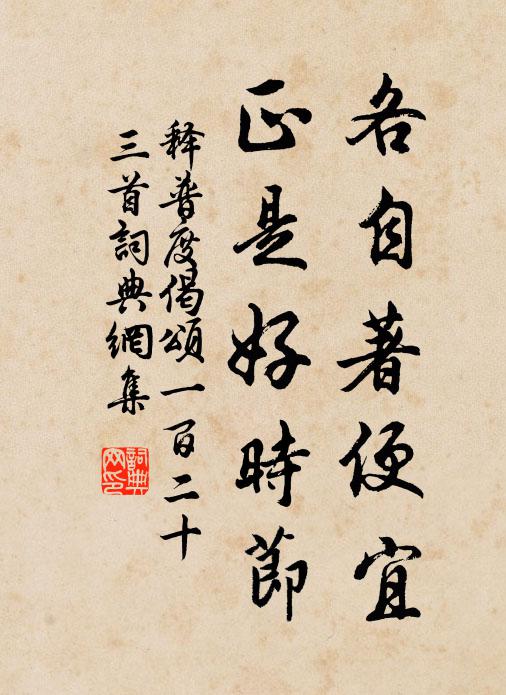 各自著便宜
正是好時節
释普度偈頌一百二十
三首詞典網集
詞典
网印